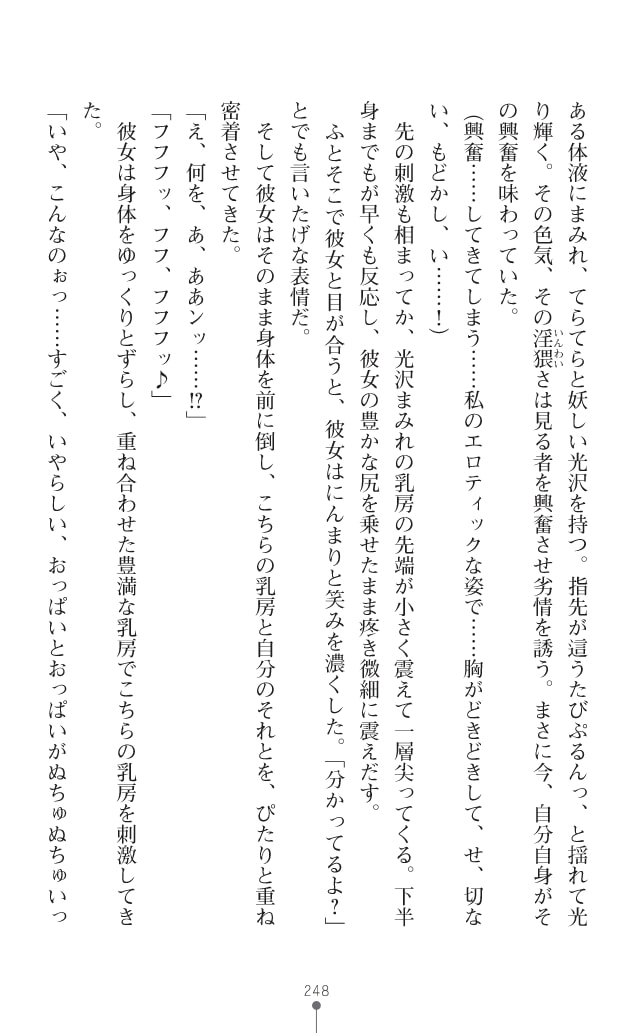 ある体液にまみれ、てらてらと妖しい光沢を持つ。指先が這うたびぷるんっ、と揺れて光
り輝く。その色気、その淫猥さは見る者を興奮させ劣情を誘う。まさに今、自分自身がそ
いんわい
の興奮を味わっていた。
(興奮……してきてしまう……私のエロティックな姿で……胸がどきどきして、せ、切な
い、もどかし、い……!)
先の刺激も相まってか、光沢まみれの乳房の先端が小さく震えて一層尖ってくる。下半
身までもが早くも反応し、彼女の豊かな尻を乗せたまま疼き微細に震えだす。
ふとそこで彼女と目が合うと、彼女はにんまりと笑みを濃くした。「分かってるよ?」
とでも言いたげな表情だ。
そして彼女はそのまま身体を前に倒し、こちらの乳房と自分のそれとを、ぴたりと重ね
密着させてきた。
「え、何を、あ、ああンッ……!?」
「フフフッ、フフ、フフフッ♪」
彼女は身体をゆっくりとずらし、重ね合わせた豊満な乳房でこちらの乳房を刺激してき
た。
「いや、こんなのぉっ……すごく、いやらしい、おっぱいとおっぱいがぬちゅぬちゅいっ
248